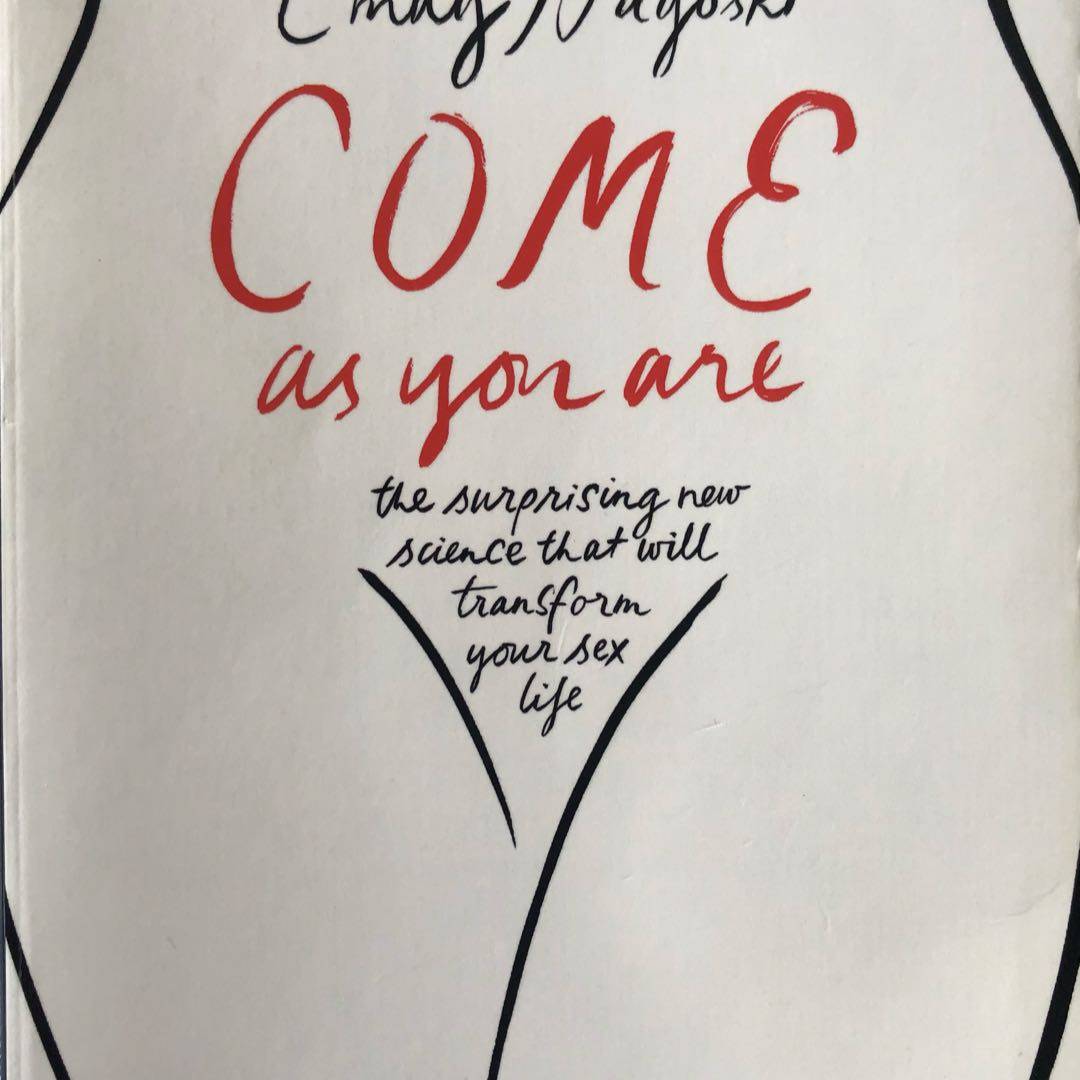 Emily Nagoski
COME
as you are
the surprising new
science that will
transform
your sex
life